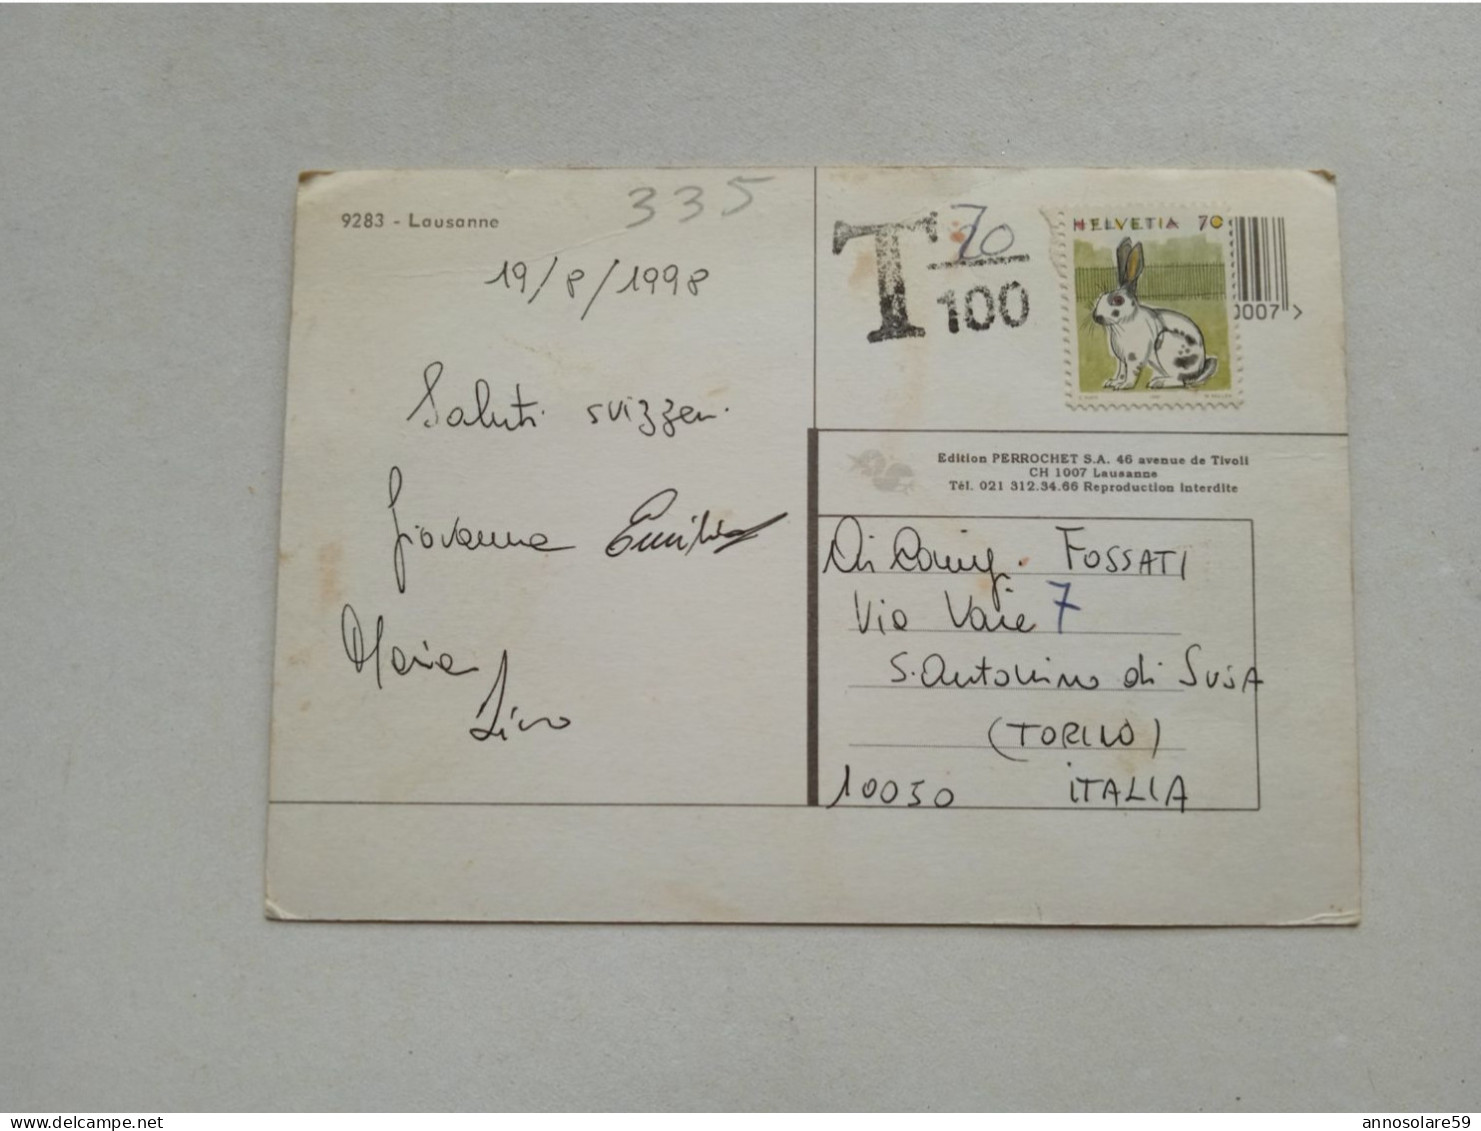 9283 - Lausanne
335
19/8/1998
Saluti svizzeri
Giovanna Emilia
Maria
Lino
T 70
100
HELVETIA 70
0007 >
Edition PERROCHET S.A. 46 avenue de Tivoli
CH 1007 Lausanne
Tél. 021 312.34.66 Reproduction interdite
FOSSATI
Via Vaie 7
S. Antonino di SUSA
(TORINO)
10050 ITALIA
delcampe.net
annosolare59